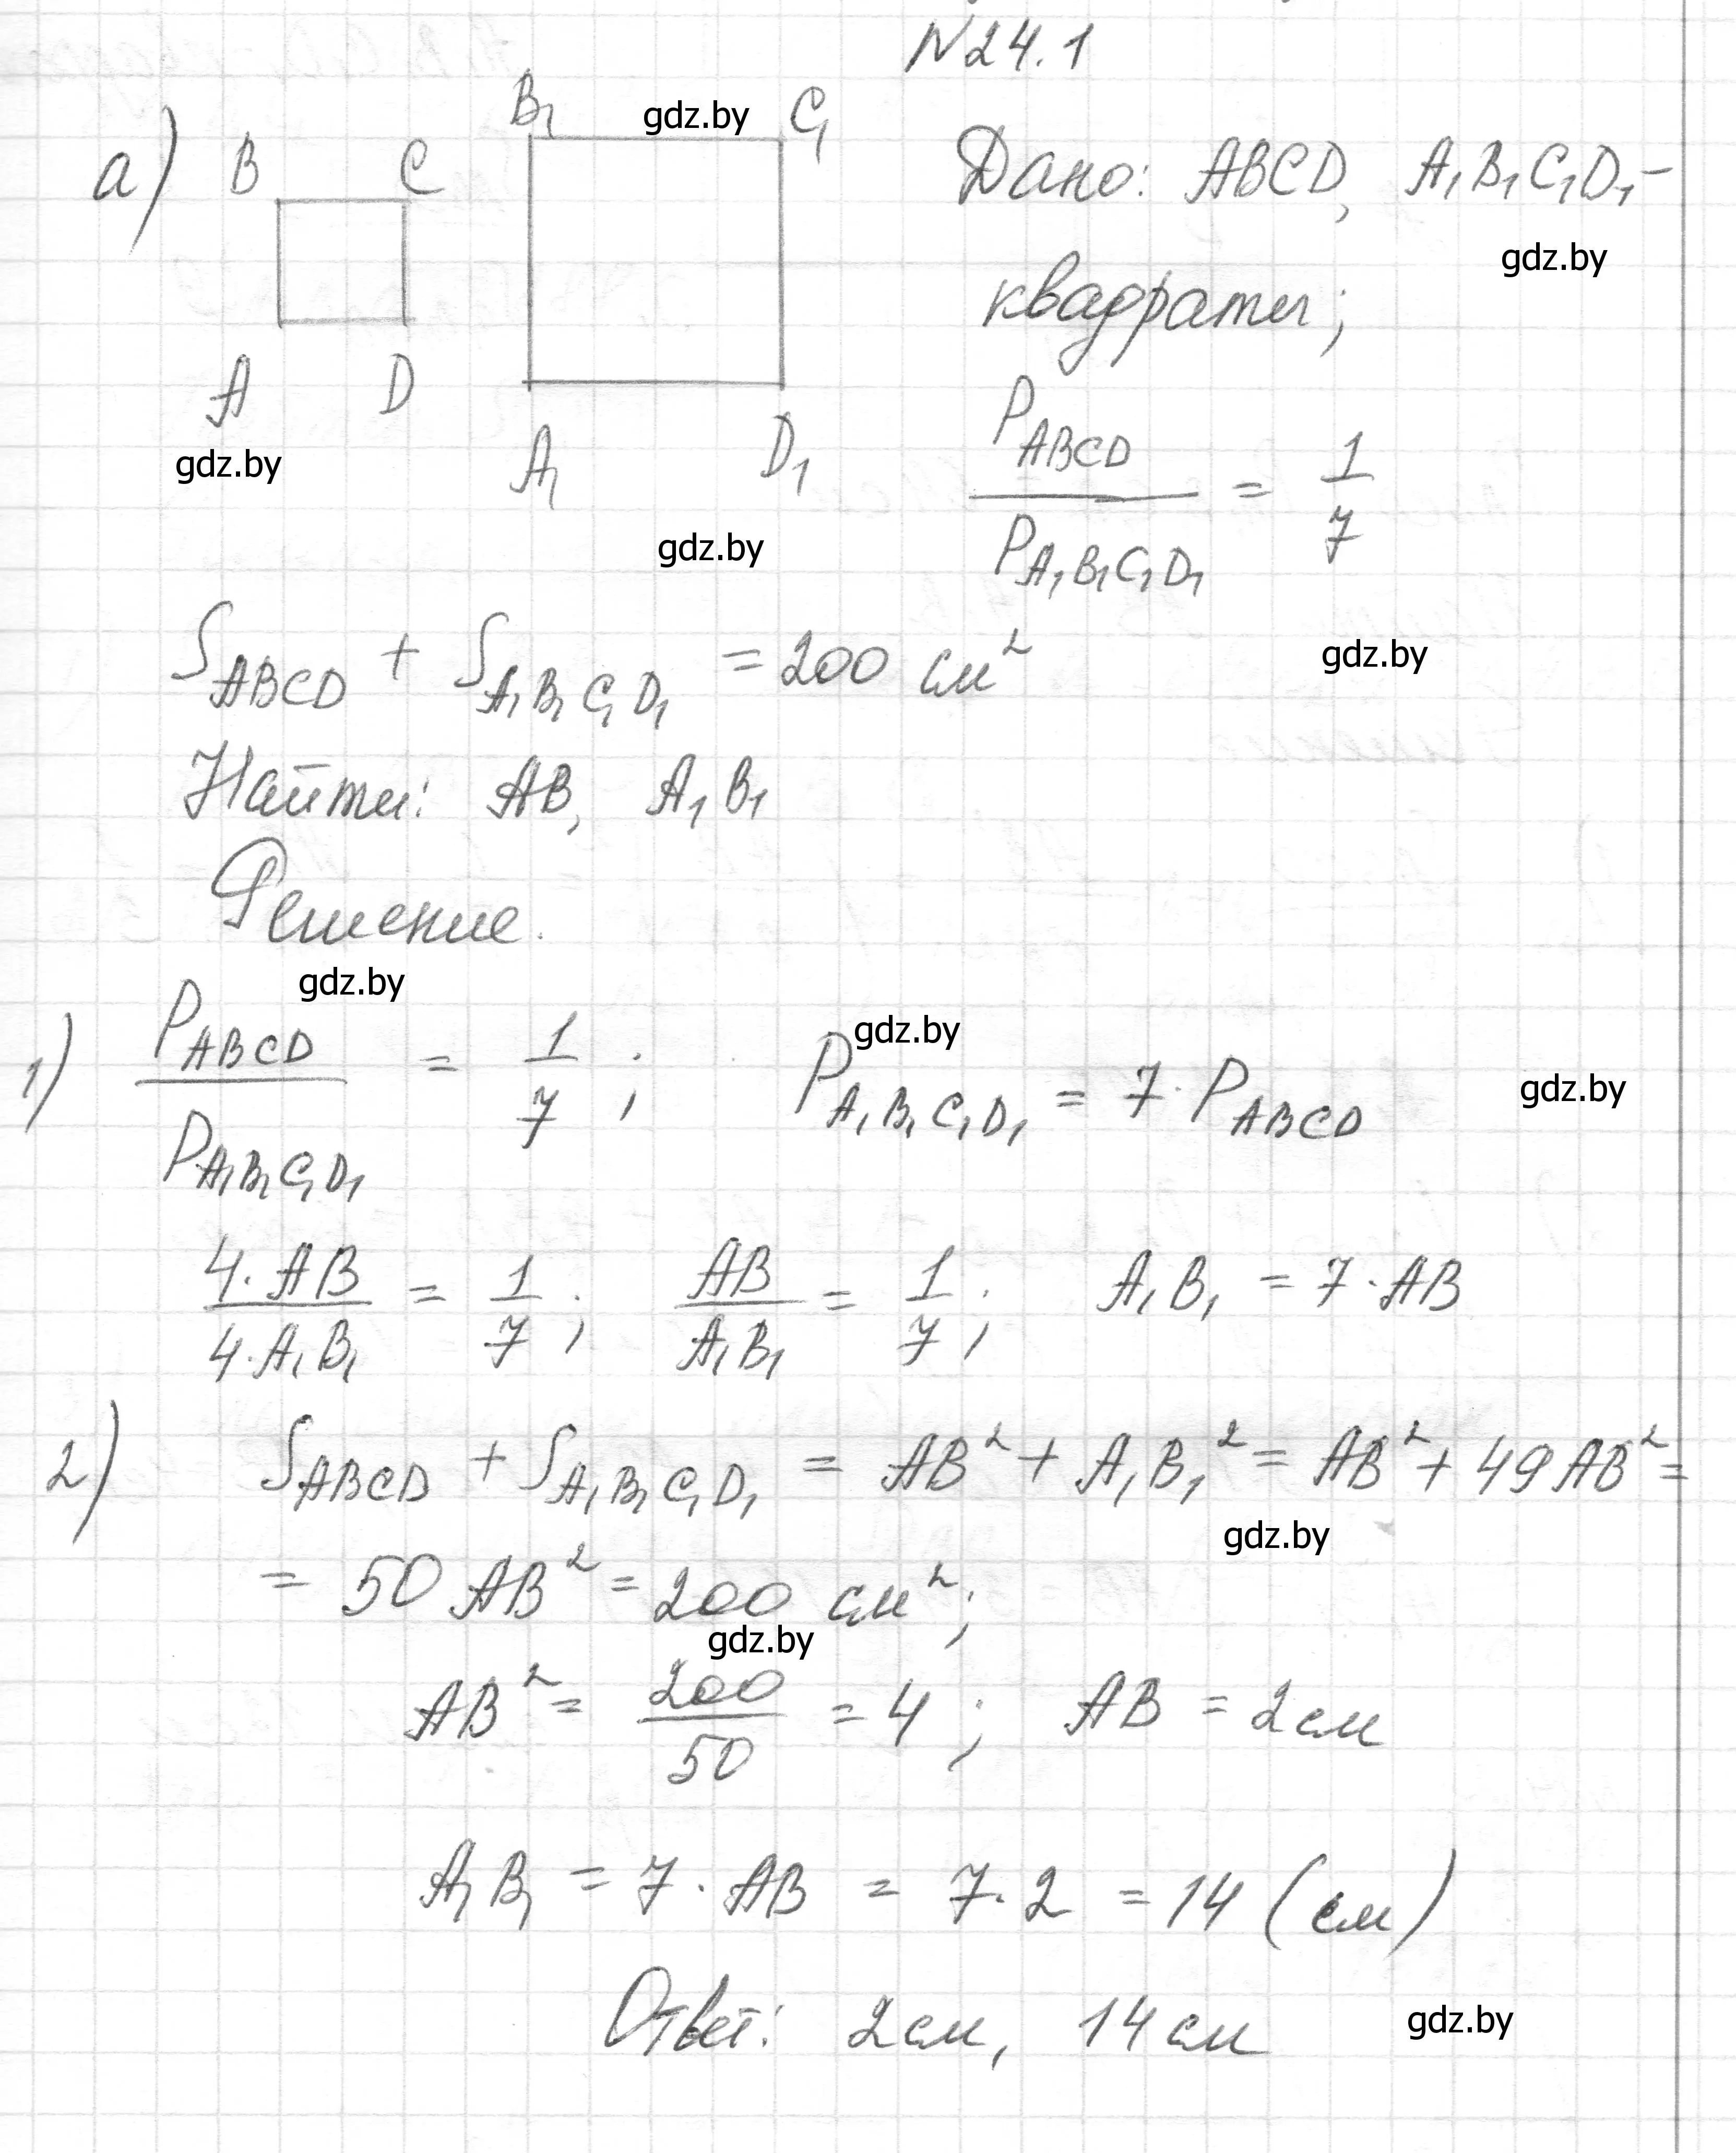 №24.1
а) B C B₁ C₁ gdz.by
A D A₁ D₁
gdz.by
gdz.by
Дано: ABCD, A₁B₁C₁D₁ –
gdz.by
квадраты;
P_ABCD / P_A₁B₁C₁D₁ = 1/7
S_ABCD + S_A₁B₁C₁D₁ = 200 см² gdz.by
Найти: AB, A₁B₁
Решение.
gdz.by
gdz.by
1) P_ABCD / P_A₁B₁C₁D₁ = 1/7 ; P_A₁B₁C₁D₁ = 7·P_ABCD gdz.by
4·AB / 4·A₁B₁ = 1/7 ; AB / A₁B₁ = 1/7 ; A₁B₁ = 7·AB
2) S_ABCD + S_A₁B₁C₁D₁ = AB² + A₁B₁² = AB² + 49AB² =
gdz.by
= 50 AB² = 200 см²;
gdz.by
AB² = 200/50 = 4 ; AB = 2см
A₁B₁ = 7·AB = 7·2 = 14 (см)
Ответ: 2см, 14см gdz.by